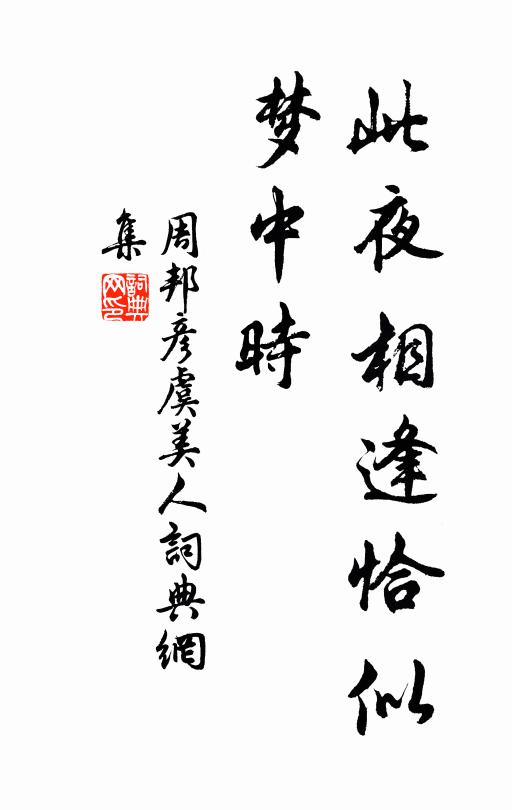 此夜相逢恰似
梦中時
周邦彦虞美人詞典網
集
詞典
网印